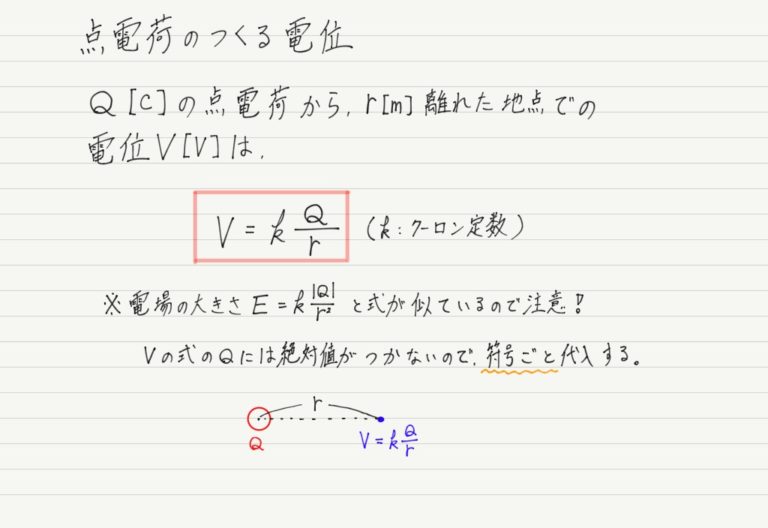 点電荷のつくる電位
Q [C]の点電荷から, r[m] 離れた地点での
電位V[V]は,
V = k Q/r (k:クーロン定数)
※電場の大きさ E = k |Q|/r² と式が似ているので注意!
Vの式のQには絶対値がつかないので,符号ごと代入する。
r
Q
V = k Q/r